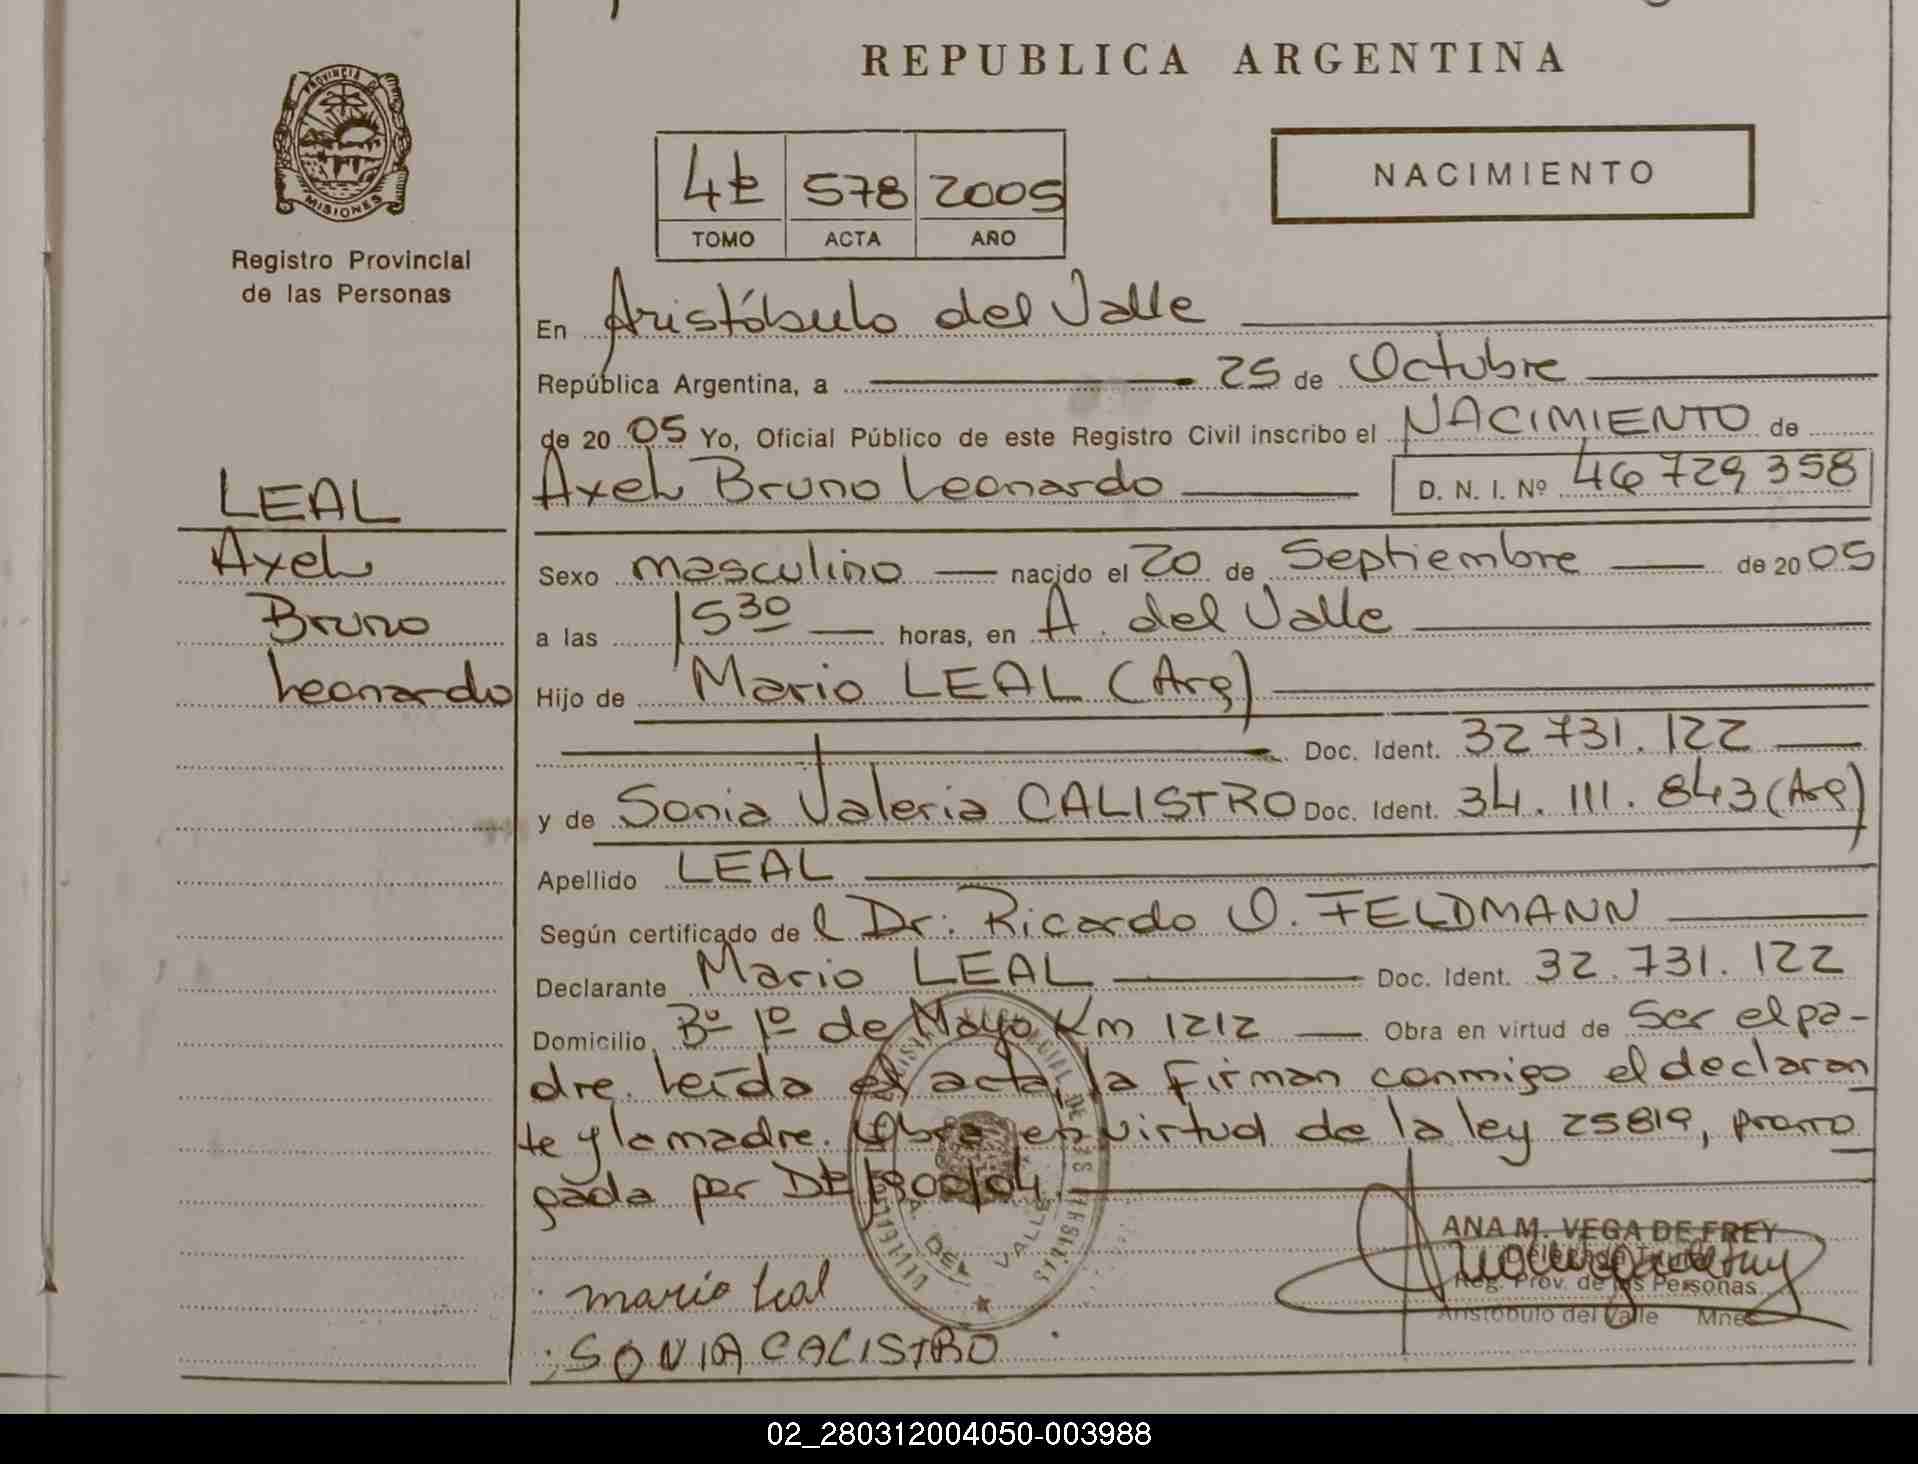 REPUBLICA ARGENTINA
PROVINCIA DE MISIONES
Registro Provincial
de las Personas
NACIMIENTO
4t 578 2005
TOMO ACTA AÑO
En Aristóbulo del Valle
República Argentina, a 25 de Octubre
de 20 05 Yo, Oficial Público de este Registro Civil inscribo el NACIMIENTO de
Axel Bruno Leonardo D. N. I. Nº 46 729 358
LEAL
Axel
Bruno
Leonardo
Sexo masculino nacido el 20 de Septiembre de 20 05
a las 15 30 horas, en A. del Valle
Hijo de Mario LEAL (Arg)
Doc. Ident. 32 731.122
y de Sonia Valeria CALISTRO Doc. Ident. 34.111.843 (Arg)
Apellido LEAL
Según certificado de l Dr: Ricardo O. FELDMANN
Declarante Mario LEAL Doc. Ident. 32.731.122
Domicilio Bº 1º de Mayo Km 1212 Obra en virtud de Ser el pa-
dre. Leída el acta, la Firman conmigo el declaran
te y la madre. Obra en virtud de la ley 25819, prorro
gada por 1900/04.
ANA M. VEGA DE FREY
Reg. Prov. de las Personas
Aristóbulo del Valle Mnes
A. DEL VALLE
mario leal
SONIA CALISTRO
02_280312004050-003988